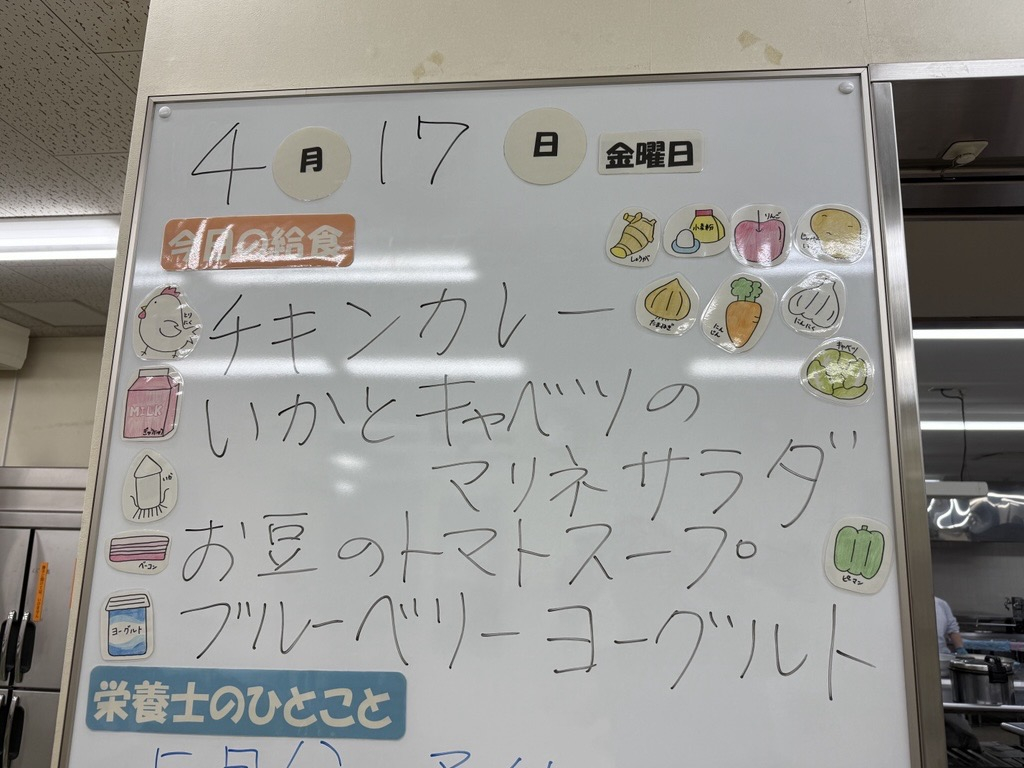 4月17日 金曜日
今日の給食
しょうが
小麦粉
りんご
じゃがいも
チキンカレー
とりにく
たまねぎ
にんじん
にんにく
キャベツ
いかとキャベツの
MILK
ぎゅうにゅう
マリネサラダ
いか
お豆のトマトスープ
ベーコン
ピーマン
ブルーベリーヨーグルト
ヨーグルト
栄養士のひとこと